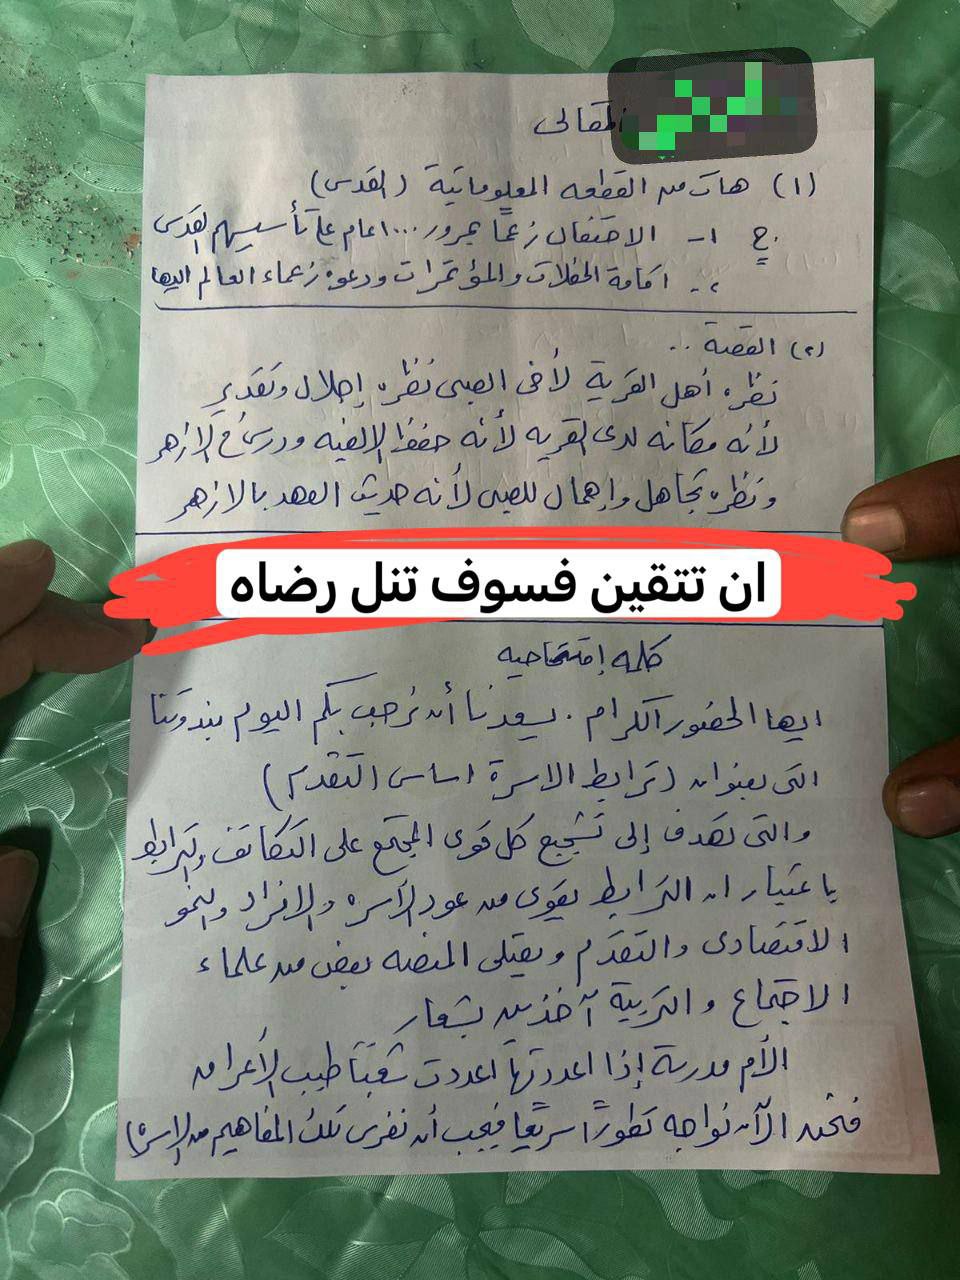 المقالى
(١) هات من القطعه المعلوماتية (القدس)
ج ١- الاحتفال زعماً بمرور ٣٠٠٠ عام على تأسيسهم القدس
٢- اقامة الحفلات والمؤتمرات ودعوه زعماء العالم اليها
(٢) القصة ..
نظره أهل القرية لأخى الصبى نظره إجلال وتقدير
لأنه مكانه لدى القريه لأنه حفظ الإلفيه ودرس الازهر
ونظره تجاهل وإهمال للصبى لأنه حديث العهد بالازهر
ان تتقين فسوف تنل رضاه
كلمه إفتتاحيه
ايها الحضور الكرام . يسعدنا أن نرحب بكم اليوم بندوتنا
التى بعنوان (ترابط الاسرة اساس التقدم)
والتى تهدف إلى تشجيع كل قوى المجتمع على التكاتف والترابط
باعتبار ان الترابط يقوى من عود الأسره والافراد والنمو
الاقتصادى والتقدم ويعتلى المنصه بعض من علماء
الاجتماع والتربية آخذين بشعار
الأم مدرسة إذا اعددتها اعددت شعبًا طيب الأعراق
فنحن الآن نواجه تطورًا سريعًا فيجب أن نغرس تلك المفاهيم من الاسره